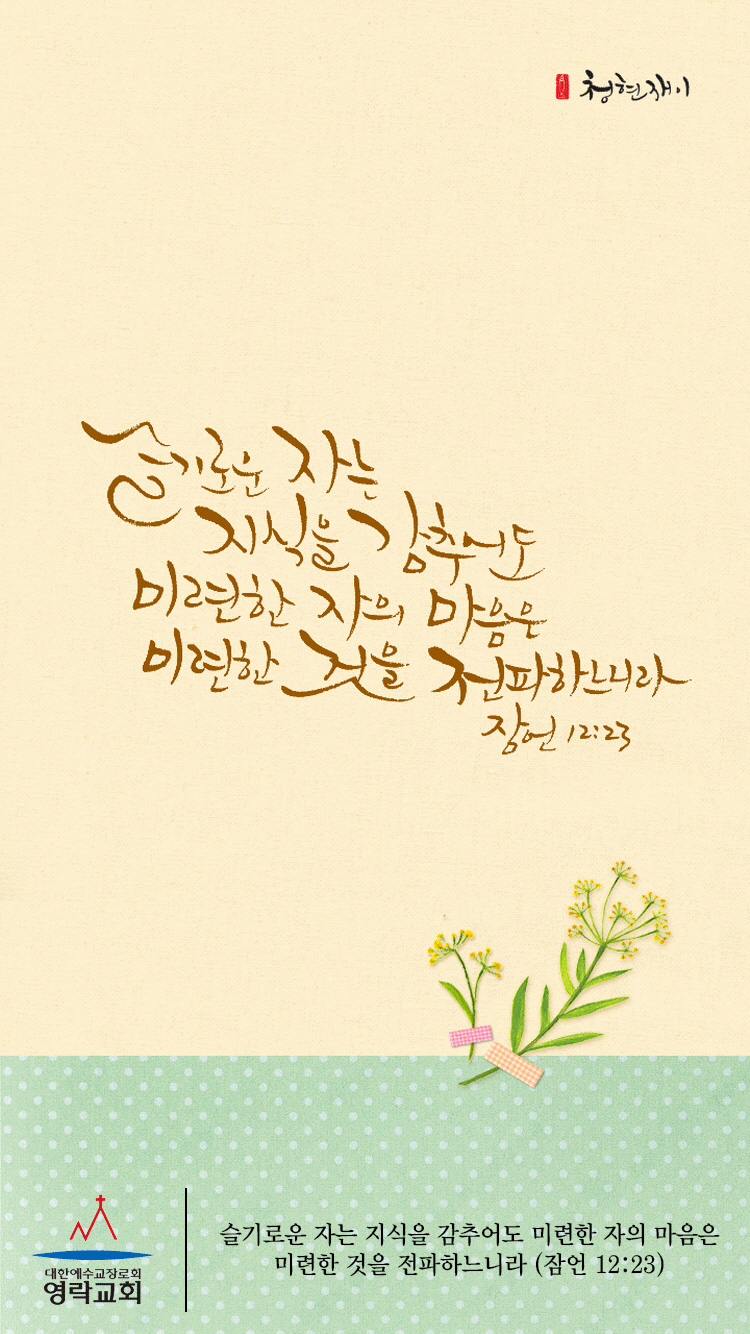 청현재이
슬기로운 자는
지식을 감추어도
미련한 자의 마음은
미련한 것을 전파하느니라
잠언 12:23
대한예수교장로회
영락교회
슬기로운 자는 지식을 감추어도 미련한 자의 마음은
미련한 것을 전파하느니라 (잠언 12:23)